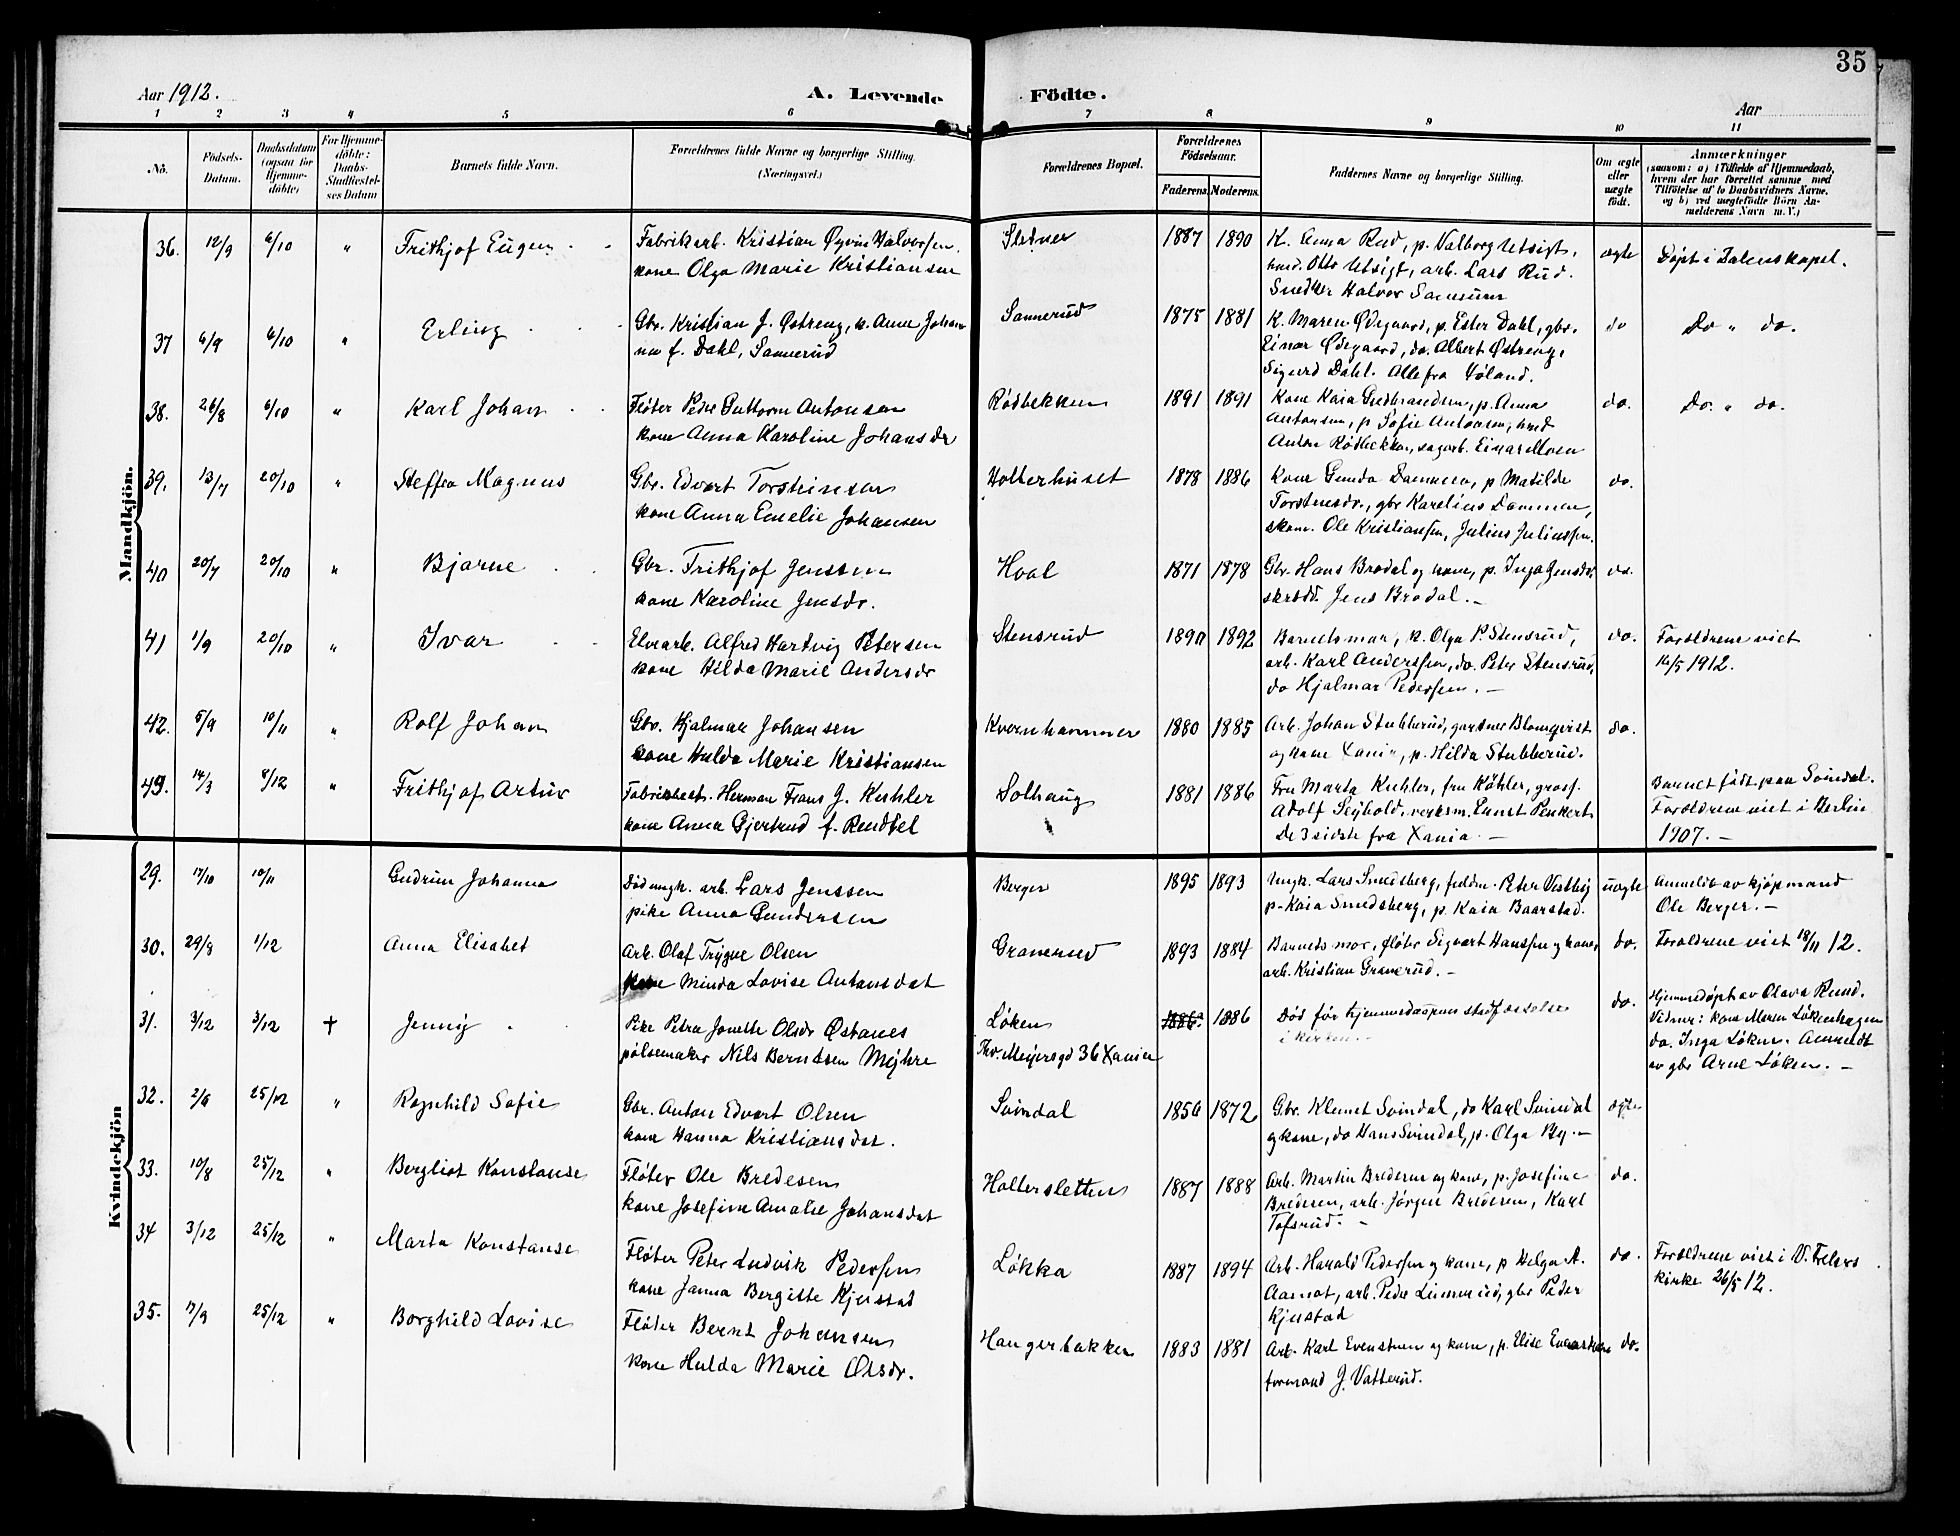 35
Aar 1912.
A. Levende Födte.
Aar
1 2 3 4 5 6 7 8 9 10 11
No.
Födsels-Datum.
Daabsdatum (ogsaa for Hjemmedöbte)
For Hjemmedöbte: Daabs-Stadfæstelses Datum
Barnets fulde Navn.
Forældrenes fulde Navne og borgerlige Stilling. (Næringsvei.)
Forældrenes Bopæl.
Forældrenes Födselsaar.
Faderens. Moderens.
Faddernes Navne og borgerlige Stilling.
Om ægte eller uægte födt.
Anmærkninger
(saasom: a) i Tilfælde af Hjemmedaab,
hvem der har forrettet samme med
Tilföielse af to Daabsvidners Navne,
og b) ved uægtefödte Börn An-
melderens Navn m. V.)
Mandkjön.
36. 12/9 6/10 " Frithjof Eugen
Fabrikarb. Kristian Øyvin Halvorsen
kone Olga Marie Kristiansen
Sletner 1887 1890
K. Anna Rud, p. Valborg Utsigt,
hmd. Otto Utsigt, arb. Lars Rud.
Snedker Halvor
ægte Døpt i Dalens kapel.
37 6/9 6/10 " Erling
Gbr. Kristian J. Østreng, k. Anne Johan
na f. Dahl, Sannerud
Sannerud 1875 1881
K. Maren Ødegaard, p. Ester Dahl, gbr.
Einar Ødegaard, do. Albert Østreng,
Sigurd Dahl. Alle fra Høland.
do Do " do.
38. 26/8 6/10 " Karl Johan
Fløter Peder Guttorm Antonsen
kone Anna Karoline Johansdr
Rødbekken 1891 1891
Kone Kaia Gudbrandsen, p. Anna
Antonsen, p Sofie Antonsen, hmd
Anton Rødbekken, sagarb. Einar Moen
do. Do. " do.
39. 13/7 20/10 " Steffen Magnus
Gbr. Edvart Torsteinsen
kone Anna Emelie Johansen
Holterhuset 1878 1886
Kone Gunda Dammen, p Matilde
Torstensdr., gbr Karelius Dammen,
skom. Ole Kristiansen, Julius Juliussen.
do.
40 20/7 20/10 " Bjarne
Gbr. Frithjof Jenssen
kone Karoline Jensdr.
Hval 1871 1878
Gbr. Hans Brødal og kone, p. Inga Jensdr.
skrædd. Jens Brødal.–
do.
41 1/9 20/10 " Ivar
Elvearb. Alfred Hartvig Petersen
kone Hilda Marie Andersdr
Stensrud 1890 1892
Barnets mor, p. Olga P. Stensrud,
arb. Karl Anderssen, do. Peter Stensrud,
do Hjalmar Pedersen.–
do. Forældrene viet
16/5 1912.
42. 5/9 10/11 " Rolf Johan
Gbr. Hjalmar Johansen
kone Hulda Marie Kristiansen
Kvernhammer 1880 1885
Arb. Johan Stubberud, gartner Blomqvist
og kone Xania, p. Hilda Stubberud.
do.
43. 14/3 8/12 " Frithjof Artur
Fabrikbest. Herman Frans J. Kuhler
kone Anna Gjertrud f. Rendtel
Solhaug 1881 1886
Fru Marta Kuhler, fru Köhler, gross.
Adolf Seybold, verksm. Ernst Penkert
De 3 sidste fra Xania.–
Barnet født paa Svindal.
Forældrene viet i Berlin
1907.–
Kvindekjön
29. 17/10 10/11 Gudrun Johanna
Död ungk. arb. Lars Jenssen
pike Anna Gundersen
Berger 1895 1893
Ungk. Lars Smedsberg, feldm. Peter Vestby
p. Kaia Smedsberg, p. Kaia Baarstad.
uægte Anmeldt av kjøpmand
Ole Berger.–
30. 29/8 1/12 Anna Elisabet
Arb. Olaf Trygve Olsen
kone Minda Lovise Antonsdat
Granerud 1893 1884
Barnets mor, fløter Sigvart Hanssen og kone,
arb. Kristian Granerud.–
do. Forældrene viet 18/11 12.
31. 3/12 3/12 † Jenny
Pike Petra Jonette Olsdr Østanes
pølsemaker Nils Berntsen Mejhre
Løken
Thv. Meyersgd 36 Xania
1886 1886
Død før hjemmedaapens stadfæstelse
i kirken.–
do. Hjemmedøpt av Olava Rund.
Vidner: kone Maren Løkenhagen
do. Inga Løken. Anmeldt
av gbr Arne Løken.–
32. 2/6 25/12 " Ragnhild Sofie
Gbr. Anton Edvart Olsen
kone Hanna Kristiansdat.
Svindal 1856 1872
Gbr. Klemet Svindal, do Karl Svindal
og kone, do Hans Svindal, p. Olga By.–
ægte
33. 10/8 25/12 " Bergliot Konstanse
Fløter Ole Bredesen
kone Josefine Amalie Johansdat
Holtersletten 1887 1888
Arb. Martin Bredesen og kone, p. Josefine
Bredesen, arb. Jørgen Bredesen, Karl
Tofsrud.–
do.
34 3/12 25/12 " Marta Konstanse
Fløter Peter Ludvik Pedersen
kone Janna Bergitte Kjustad
Løkka 1887 1894
Arb. Harald Pedersen og kone, p Helga A.
Aamot, arb. Peder Linnerud, gbr Peder
Kjustad
do. Forældrene viet i V. Frelsers
kirke 26/5 12.
35. 17/9 25/12 " Borghild Lovise
Fløter Bernt Johansen
kone Hulda Marie Olsdr.
Haugerbakken 1883 1881
Arb. Karl Evensen og kone, p. Elise
formand J. Vatterud.
do.